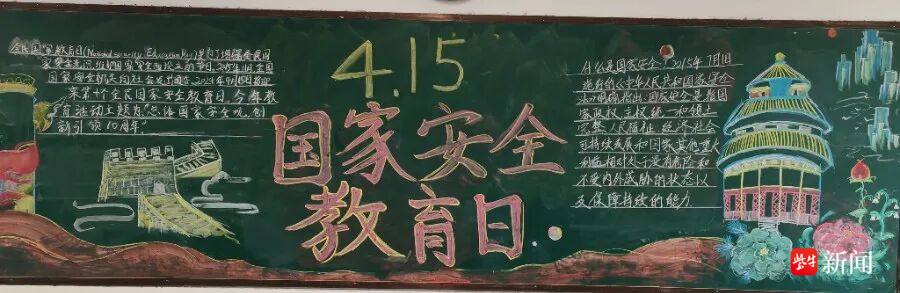 全民国家教育日(National security Education Day)是为了增强全民国
家安全意识,维护国家安全而设立的节日。2015年7月1日全国
2024年4月15日
来第十个全民国家安全教育日。今年教
育活动主题为"总体国家安全观,创
新引领10周年"
4.15
国家安全
教育日
什么是国家安全 2015年7月1日
《中华人民共和国国家安全
法》明确指出:国家安全是指国
家政权、主权、统一和领土
完整、人民福祉、经济社会
可持续发展和国家其他重大
利益相对处于没有危险和
不受内外威胁的状态以
及保障持续的能力
紫牛新闻